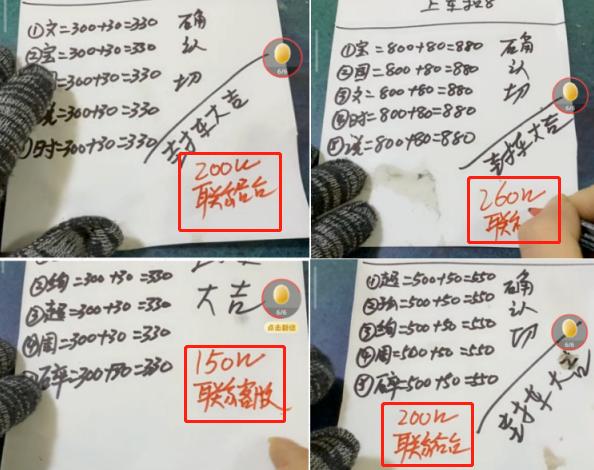 ①文=300+30=330
②宝=300+30=330
周=300+30=330
说=300+30=330
时=300+30=330
确
认
切
封车大吉
6/6
200n
联给台
上车
①宝=800+80=880
②周=800+80=880
③文=800+80=880
④时=800+80=880
⑤说=800+80=880
确
认
切
封车大吉
6/6
260n
联
②绚=300+30=330
③超=300+30=330
④周=300+30=330
石碎=300+30=330
大吉
6/6
点击翻倍
150n
联系客服
①超=500+50=550
=500+50=550
③绚=500+50=550
④周=500+50=550
⑤石碎=500+50=550
确
认
切
封车大吉
6/6
200n
联给台